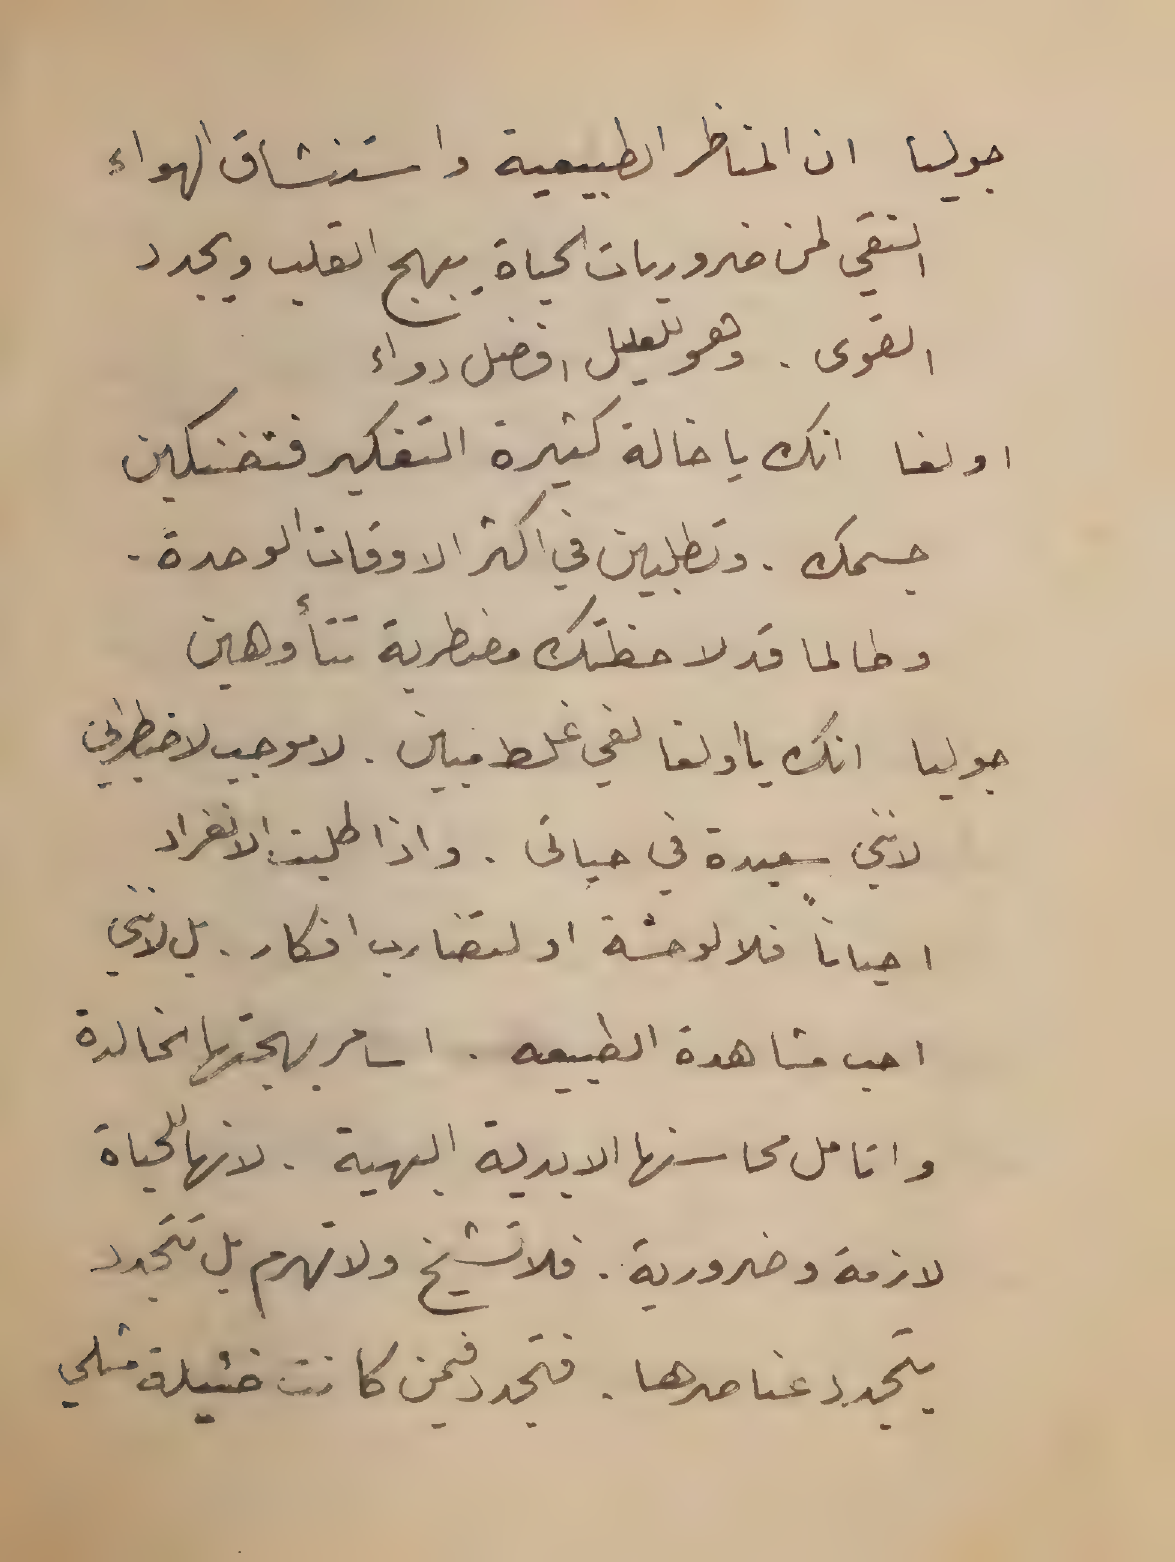 جوليا ان المناظر الطبيعية واستنشاق الهواء
النقي لمن ضروريات الحياة. يبهج القلب ويجدد
القوى . وهو للعليل افضل دواء
اولغا انك يا خالة كثيرة التفكير فتضنكين
جسمك . وتطلبين في اكثر الاوقات الوحدة .
وطالما قد لاحظتك مضطربة تتأوهين
جوليا انك يا اولغا لفي غلط مبين . لا موجب لاضطرابي
لانني سعيدة في حياتى . واذا طلبت الانفراد
احياناً فلا لوحشة او لتضارب افكار . بل لانني
احب مشاهدة الطبيعه . اسامر بهجتها الخالدة
واتامل محاسنها الابدية البهية . لانها للحياة
لازمة وضرورية . فلا تشيخ ولا تهرم بل تتجدد
بتجدد عناصرها . فتجدد فيمن كانت ضئيلة مثلي